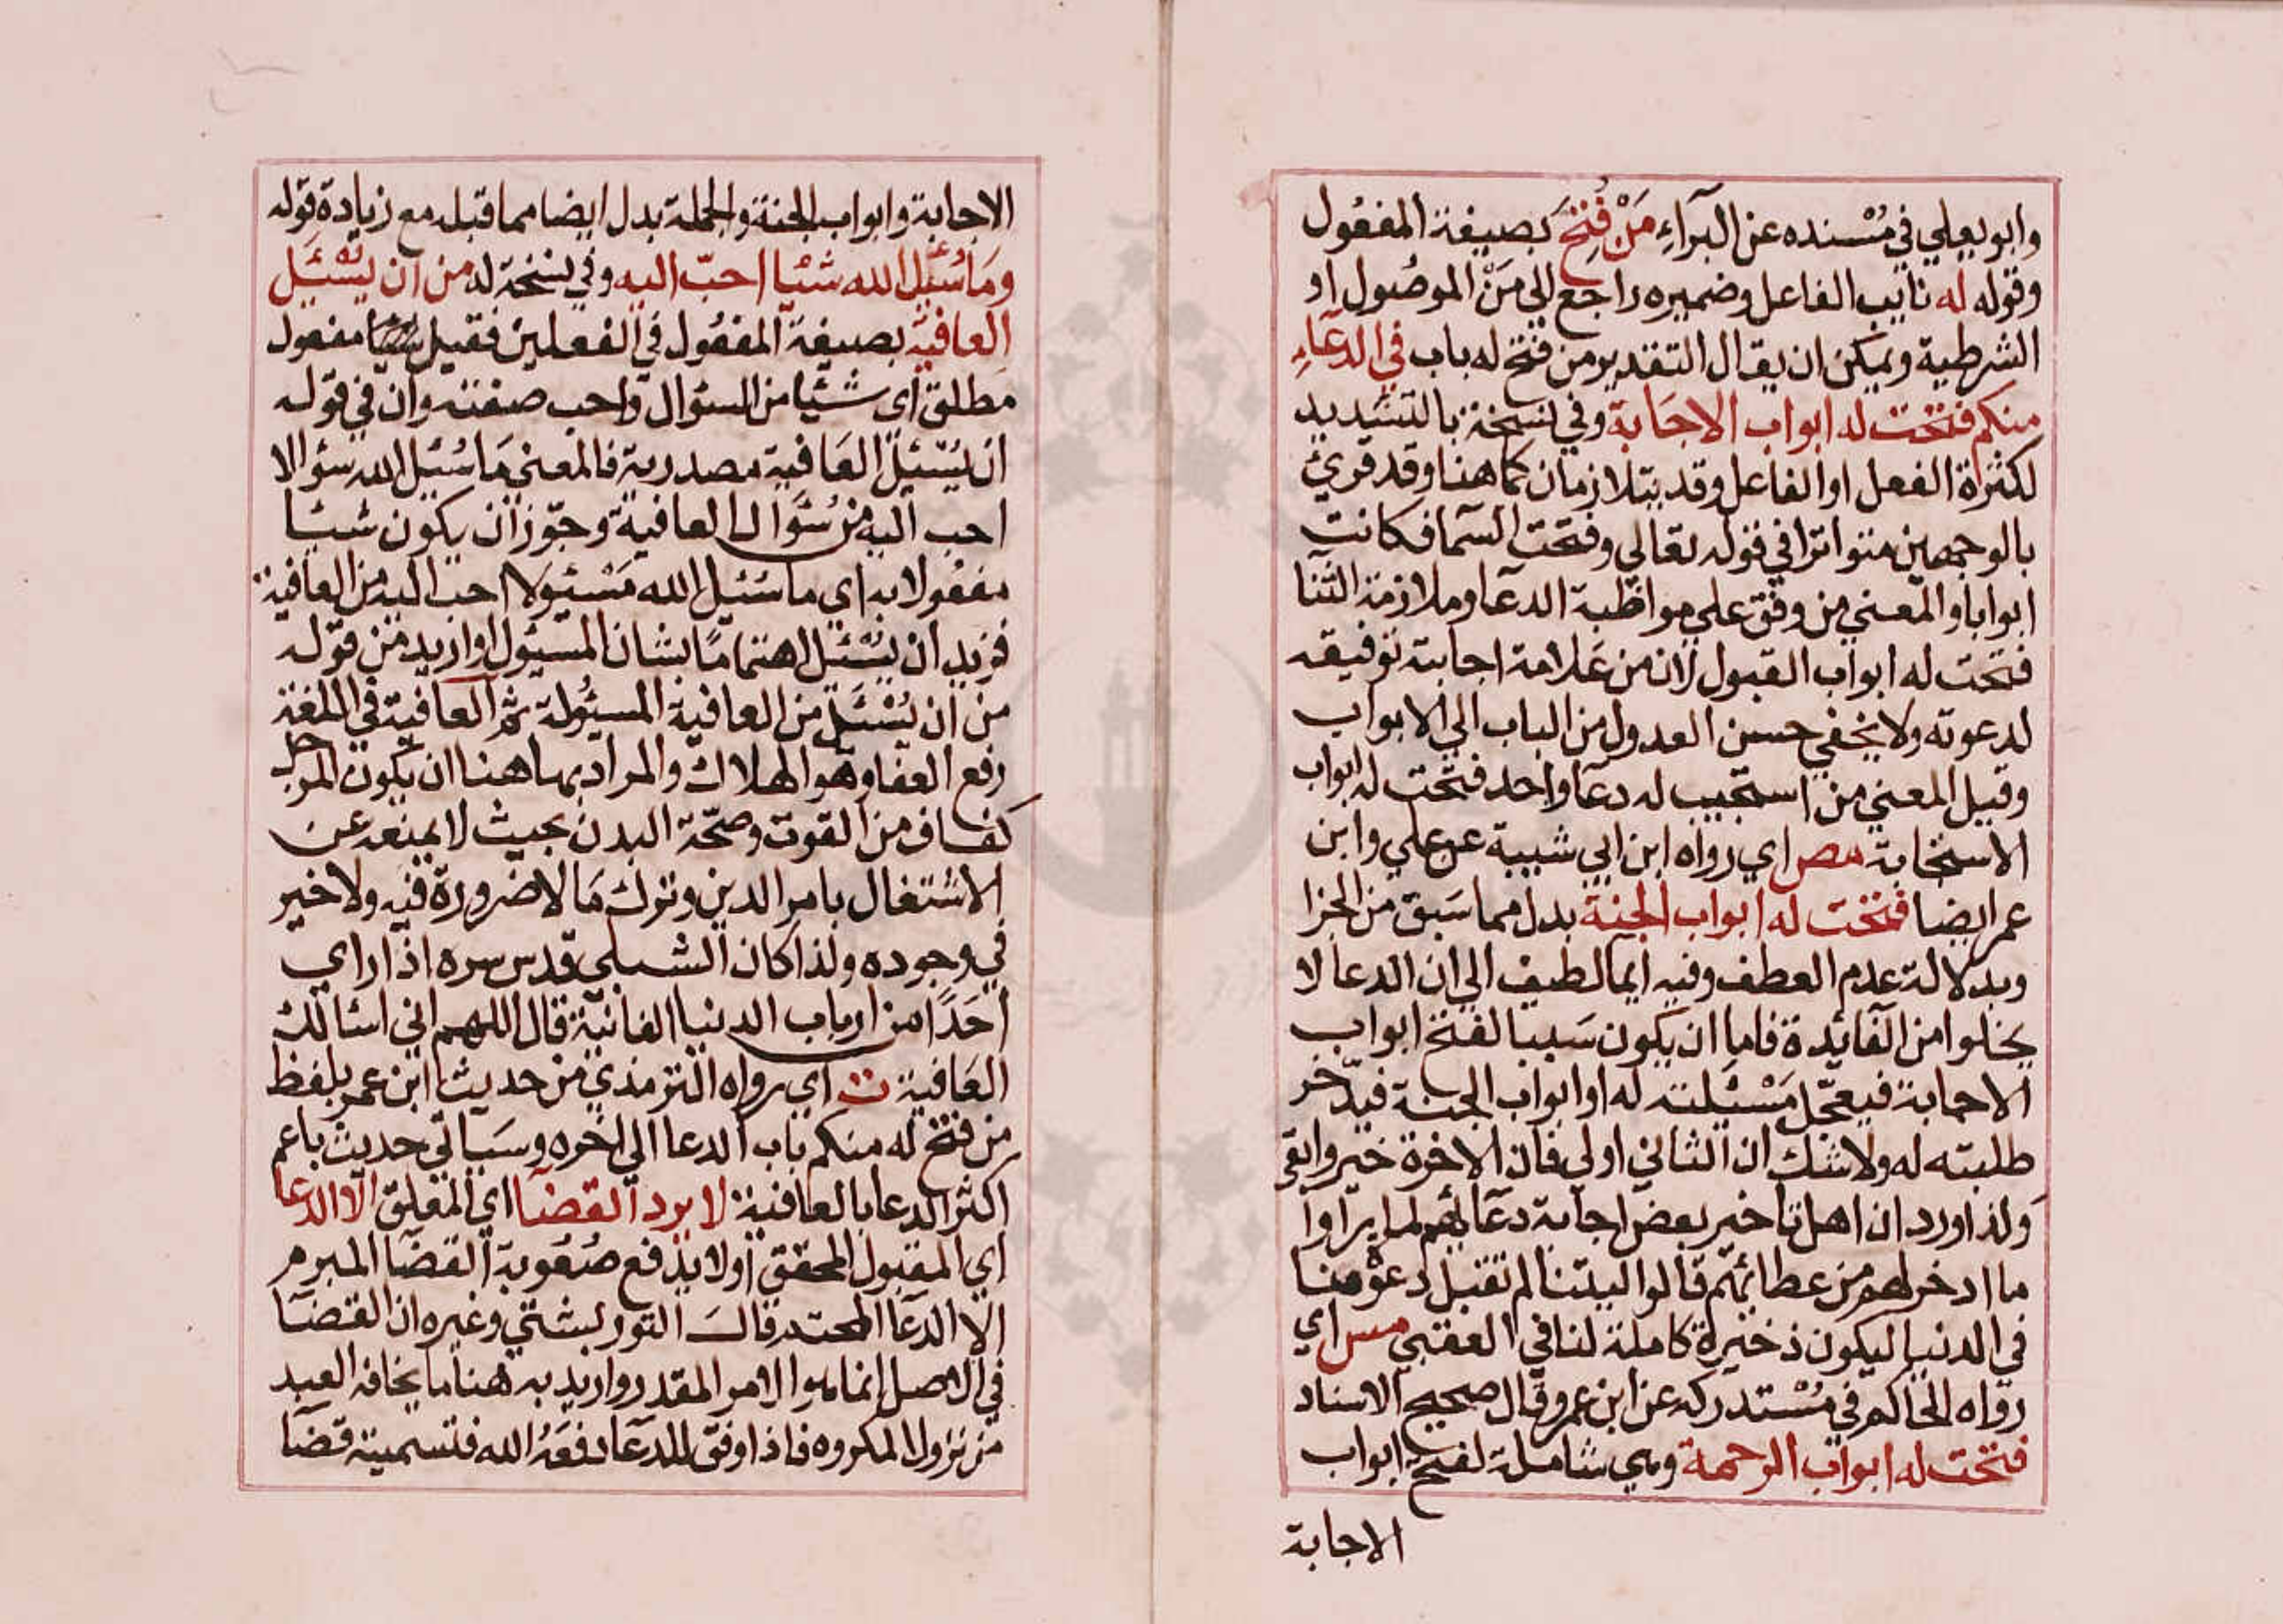 وابو يعلي في مُسْنده عن البرآء مَنْ فُتِحَ بصيغة المفعُول
وقوله له نايب الفاعل وضميره راجع الي مَنْ الموصُول او
الشرطية ويمكن ان يقال التقدير ومن فتح له باب في الدعاء
منكم فتحت له ابواب الاجَابة وفي نسخة بالتشديد
لكثرة الفعل او الفاعل وقد يتلازمان كما هنا وقد قرئ
بالوجهين متواترا في قوله تعالي وفتحت السما فكانت
ابوابا والمعني من وفق علي مواظبة الدعا وملازمة الثنا
فتحت له ابواب القبول لان من عَلامة اجابته توفيقه
لدعوته ولا يخفي حسن العدول من الباب الي الابواب
وقيل المعني من استجيب له دعا واحد فتحت له ابواب
الاستجابة مص اي رواه ابن ابي شيبة عن علي وابن
عمر ايضا فتحت له ابواب الجنة بدل مما سَبق من الجزا
وبدلالة عدم العطف وفيه ايما لطيف الي ان الدعا لا
يخلوا من الفائدة فاما ان يكون سَببا لفتح ابواب
الاجابة فيعجّل مَسْئلته له او ابواب الجنة فيدّخر
طلبته له ولا شك ان الثاني اولي فان الاخرة خير وابقي
ولذا ورد ان اهل تاخير بعض اجابة دعائهم لما يرآوا
ما ادخر لهم من عطائهم قالوا ليتنا لم تقبل دعوْه منا
في الدنيا ليكون ذخيرة كاملة لنا في العقبي مس اي
رواه الحاكم في مُسْتدركه عن ابن عمر وقال صحيح الاسناد
فتحت له ابواب الرحمة وهي شاملة لفتح ابواب
الاجابة
الاجابة وابواب الجنة والجملة بدل ايضا مما قبله مع زيادة قوله
ومَا سُئل الله شيا احبّ اليه وفي نسخة له من ان يُسْئَل
العافية بصيغة المفعُول في الفعلين فقيل شيئا مفعول
مطلق اي شيًا من السئوال واحب صفته وان في قوله
ان يُسْئل العَافية مصدرية فالمعني مَا سُئل الله سئوالا
احب اليه من سُئوال العافية وجوّز ان يكون شيئا
مفعُولا به اي ما سُئل الله مَسْئولا احب اليه من العافية
فزيد ان يُسْئل اهتمامًا بشان المسئول او اريد من قوله
من ان يُسْئَل من العافية المسئُولة ثم العافية في اللغة
رفع العفا وهو الهلاك والمراد بها هنا ان يكون للرجل
كفاف من القوت وصحّة البدن بحيث لا يمنعه عن
الاشتغال بامر الدين وترك مَا لا ضرورة فيه ولا خير
في وجوده ولذا كان الشبلي قدس سره اذا راي
احَدًا من ارباب الدنيا الفانية قال اللهم اني اسئالك
العَافية ت اي رواه الترمذي من حديث ابن عمر بلفظ
من فتح له منكم باب الدعا الي اخره وسَياتي حديث يا عم
اكثر الدعا بالعافية لا يرد القضا اي المعلق الّا الدعا
اي المقبول المحقق او لا يدفع صُعُوبة القضا المبرم
الا الدعا المحتد قالَ التوربشتي وغيره ان القضا
في الاصل انما هو الامر المقدر واريد به هنا ما يخافه العبد
من نزول المكروه فاذا وفق للدعَا دفعَهُ الله فتسميته قضا